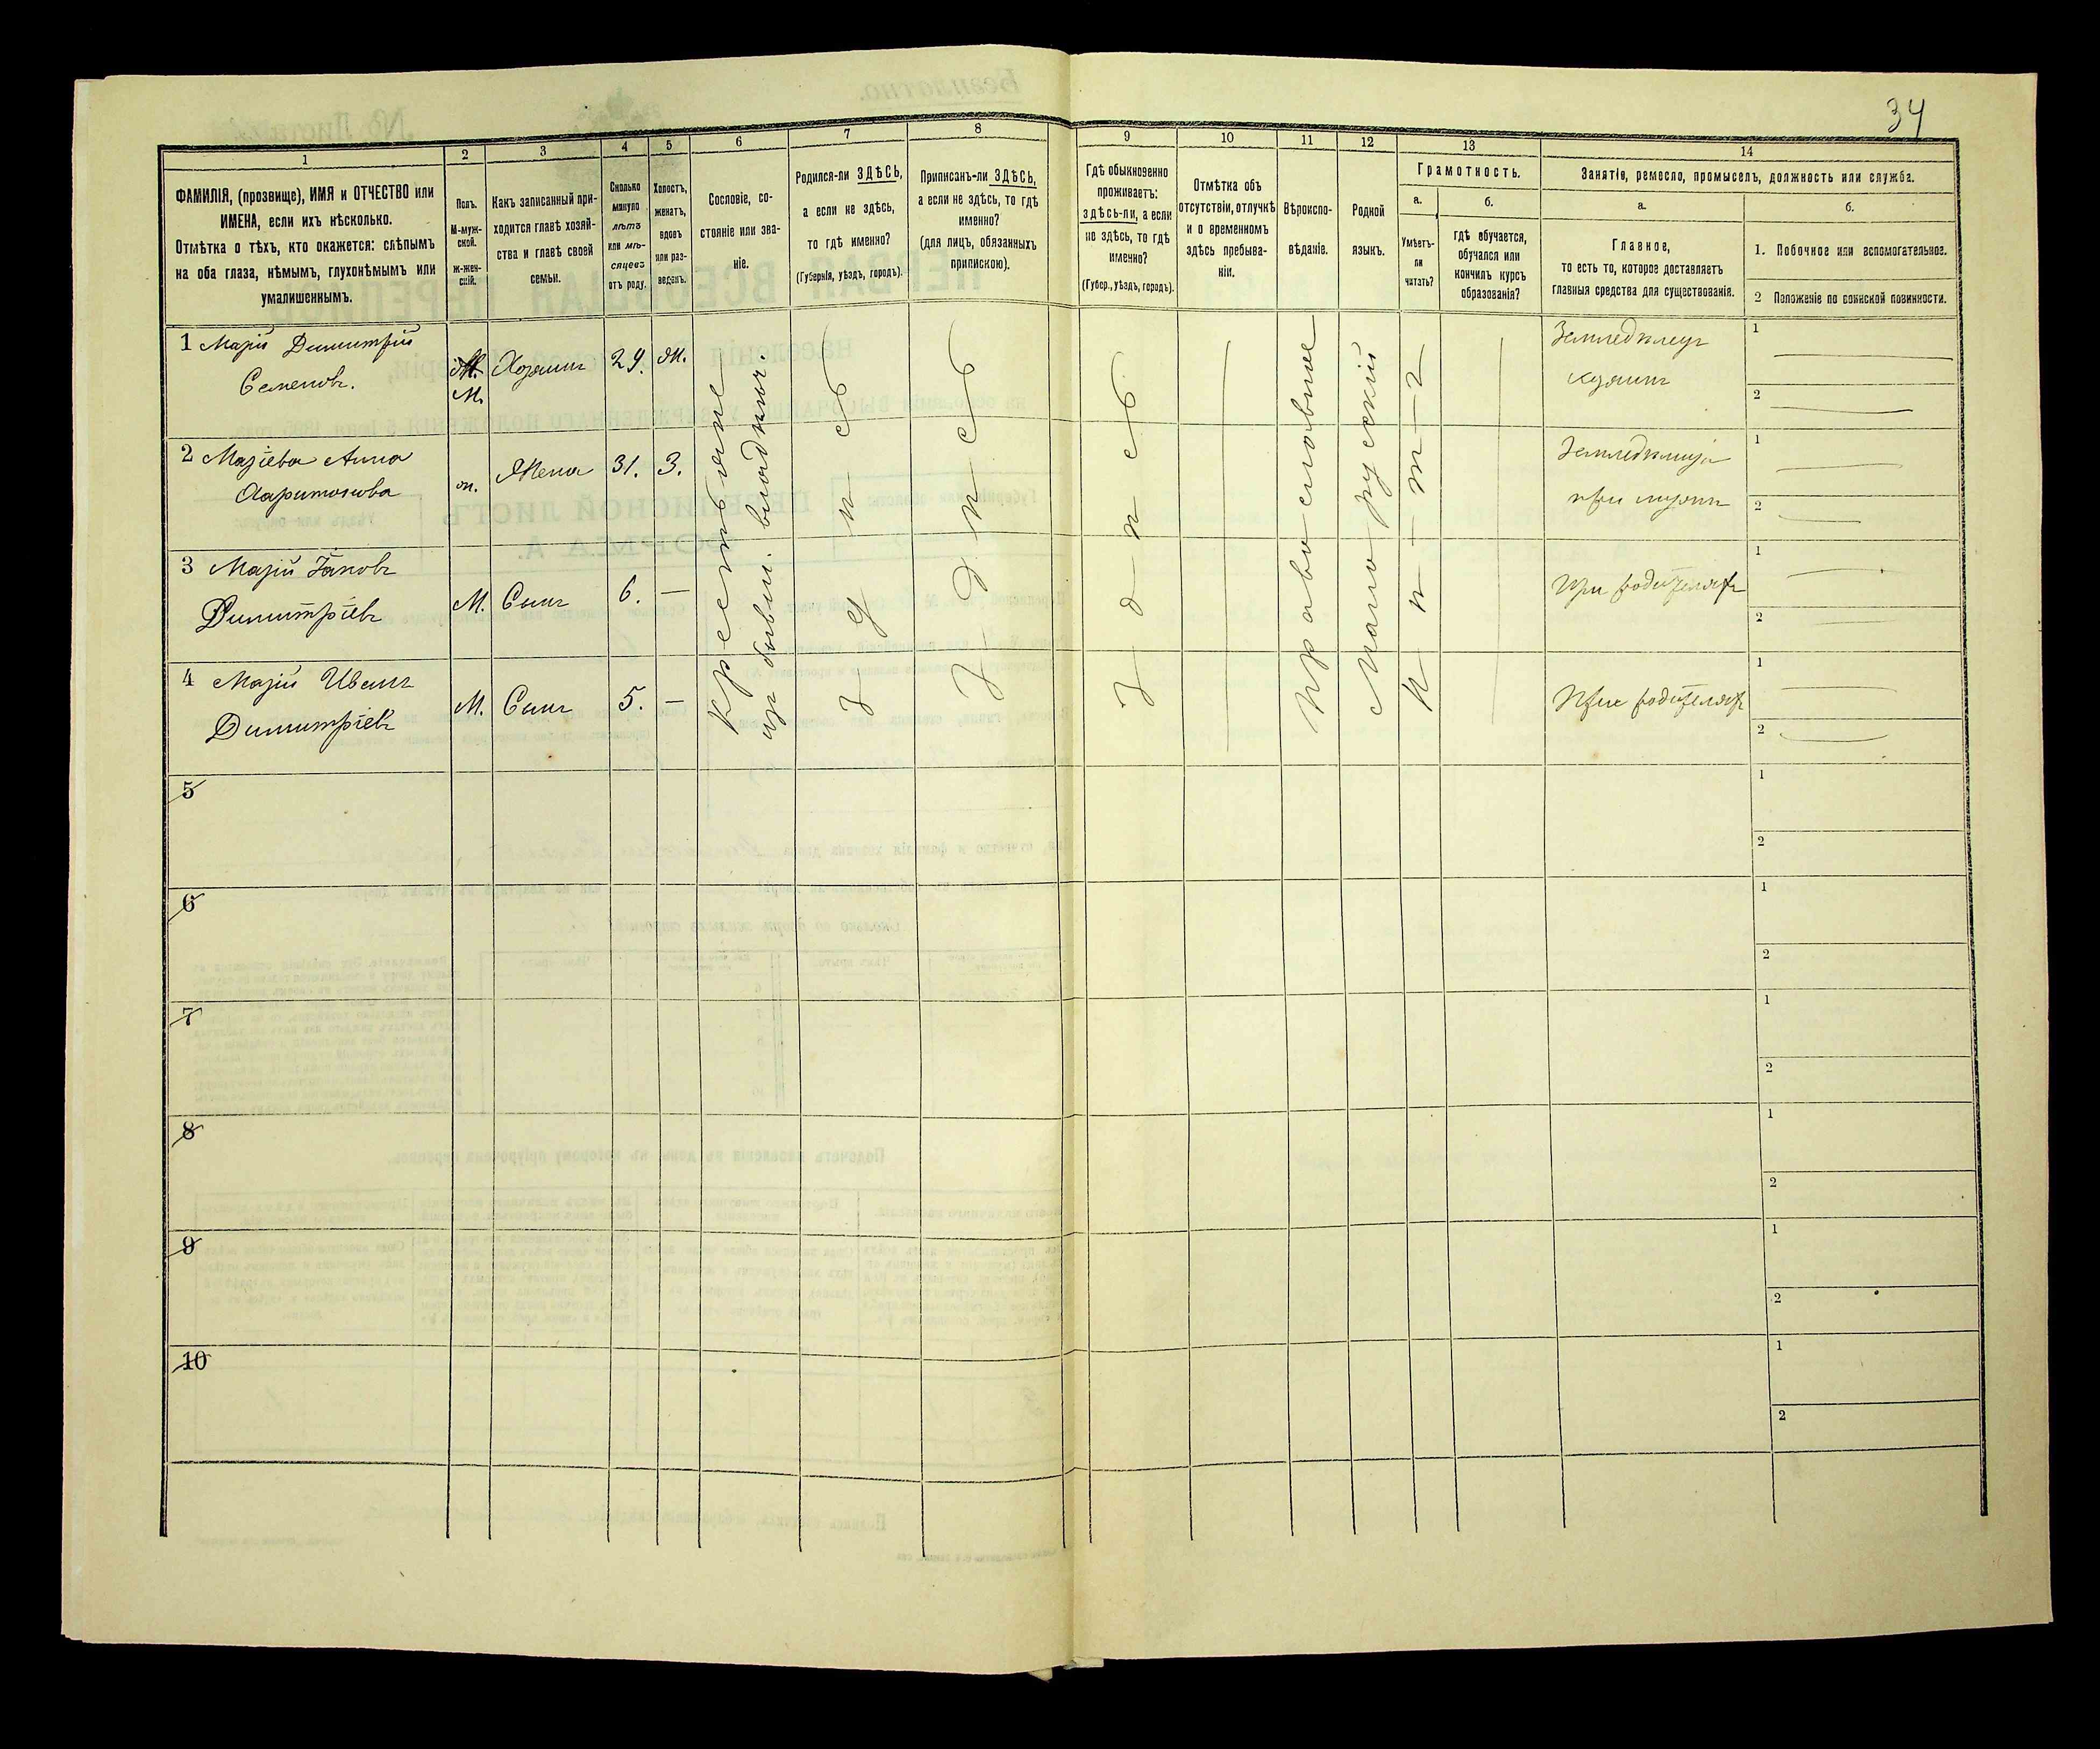 34
1
2
3
4
5
6
7
8
9
10
11
12
13
14
ФАМИЛІЯ, (прозвище), ИМЯ и ОТЧЕСТВО или
ИМЕНА, если ихъ нѣсколько.
Отмѣтка о тѣхъ, кто окажется: слѣпымъ
на оба глаза, нѣмымъ, глухонѣмымъ или
умалишеннымъ.
Полъ.
М-муж-
ской.
ж-жен-
скій.
Какъ записанный при-
ходится главѣ хозяй-
ства и главѣ своей
семьи.
Сколько
минуло
лѣтъ
или мѣ-
сяцевъ
отъ роду.
Холостъ,
женатъ,
вдовъ
или раз-
веденъ.
Сословіе, со-
стояніе или зва-
ніе.
Родился-ли ЗДѢСЬ,
а если не здѣсь,
то гдѣ именно?
(Губернія, уѣздъ, городъ).
Приписанъ-ли ЗДѢСЬ,
а если не здѣсь, то гдѣ
именно?
(для лицъ, обязанныхъ
припискою).
Гдѣ обыкновенно
проживаетъ:
здѣсь-ли, а если
не здѣсь, то гдѣ
именно?
(Губер., уѣздъ, городъ).
Отмѣтка объ
отсутствіи, отлучкѣ
и о временномъ
здѣсь пребыва-
ніи.
Вѣроиспо-
вѣданіе.
Родной
языкъ.
Грамотность.
а.
Умѣетъ-
ли
читать?
б.
гдѣ обучается,
обучался или
кончилъ курсъ
образованія?
Занятіе, ремесло, промыселъ, должность или служба.
а.
Главное,
то есть то, которое доставляетъ
главныя средства для существованія.
б.
1. Побочное или вспомогательное.
2 Положеніе по воинской повинности.
1 Мазій Димитрій
Семеновъ.
М.
Хозяинъ
29.
Ж.
Земледѣлецъ
хозяинъ
1
2
2 Мазіева Анна
Харитонова
ж.
Жена
31.
З.
Земледѣлица
при мужѣ
1
2
3 Мазій Іаковъ
Димитріевъ
М.
Сынъ
6.
—
При родителяхъ
1
2
4 Мазій Иванъ
Димитріевъ
М.
Сынъ
5.
—
При родителяхъ
1
2
Крестьяне
изъ бывш. владѣльч.
Православные
Мало-русскій
5
1
2
6
1
2
7
1
2
8
1
2
9
1
2
10
1
2